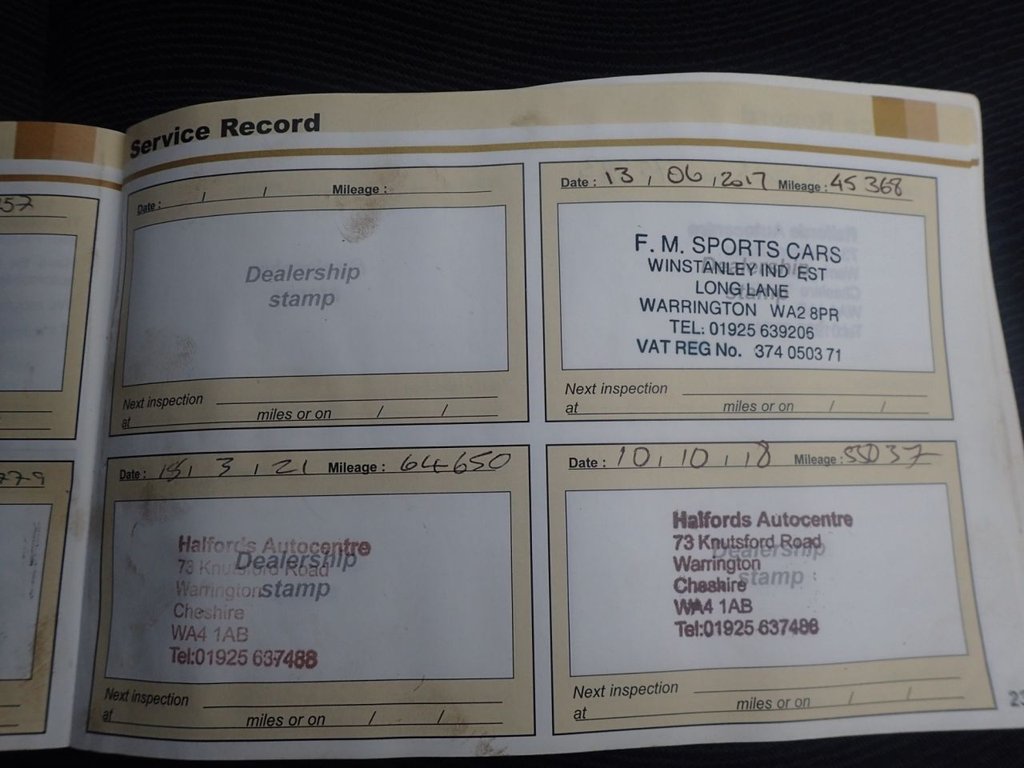 Service Record
Date : / / Mileage :
Dealership
stamp
Next inspection
at miles or on / /
Date : 13 / 06 / 2017 Mileage : 45 368
F. M. SPORTS CARS
WINSTANLEY IND EST
LONG LANE
WARRINGTON WA2 8PR
TEL: 01925 639206
VAT REG No. 374 0503 71
Next inspection
at miles or on / /
Date : 15 / 3 / 21 Mileage : 64650
Halfords Autocentre
Dealership
73 Knutsford Road
Warrington
stamp
Cheshire
WA4 1AB
Tel:01925 637488
Next inspection
at miles or on / /
Date : 10 / 10 / 18 Mileage : 55037
Halfords Autocentre
73 Knutsford Road
Dealership
Warrington
stamp
Cheshire
WA4 1AB
Tel:01925 637488
Next inspection
at miles or on / /